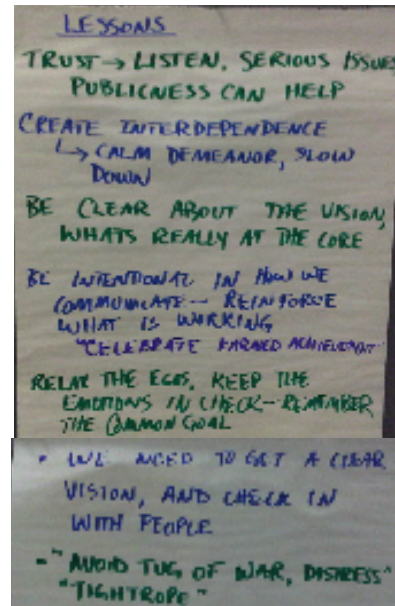 LESSONS
TRUST → LISTEN, SERIOUS ISSUES
PUBLICNESS CAN HELP
CREATE INTERDEPENDENCE
↳ CALM DEMEANOR, SLOW
DOWN
BE CLEAR ABOUT THE VISION,
WHATS REALLY AT THE CORE
BE INTENTIONAL IN HOW WE
COMMUNICATE — REINFORCE
WHAT IS WORKING
"CELEBRATE EARNED ACHIEVEMENT"
RELAX THE EGOS, KEEP THE
EMOTIONS IN CHECK — REMEMBER
THE COMMON GOAL
• WE NEED TO GET A CLEAR
VISION, AND CHECK IN
WITH PEOPLE
- "AVOID TUG OF WAR, DISTRESS"
"TIGHTROPE"